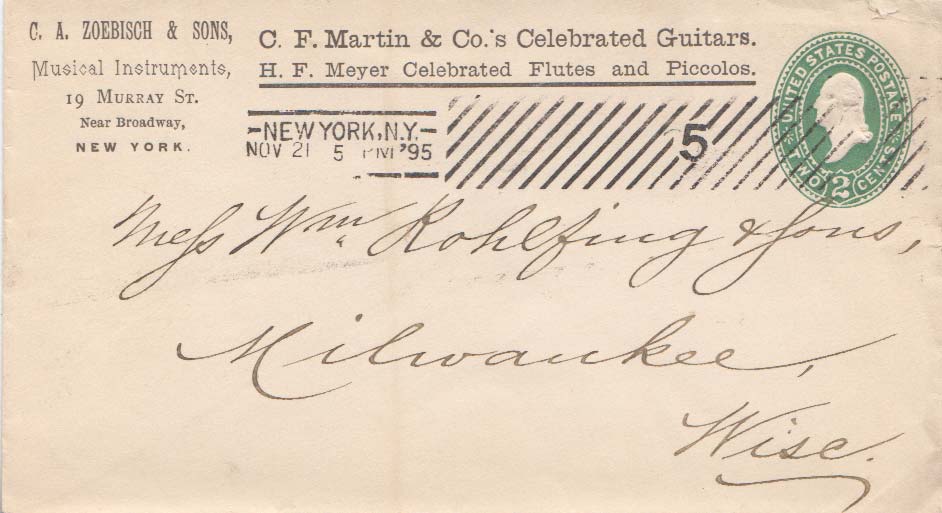 C. A. ZOEBISCH & SONS,
Musical Instruments,
19 MURRAY ST.
Near Broadway,
NEW YORK.
C. F. Martin & Co.'s Celebrated Guitars.
H. F. Meyer Celebrated Flutes and Piccolos.
NEW YORK, N.Y.
NOV 21 5 PM '95
5
UNITED STATES POSTAGE
TWO 2 CENTS
Mess Wm Rohlfing & Sons,
Milwaukee,
Wisc.